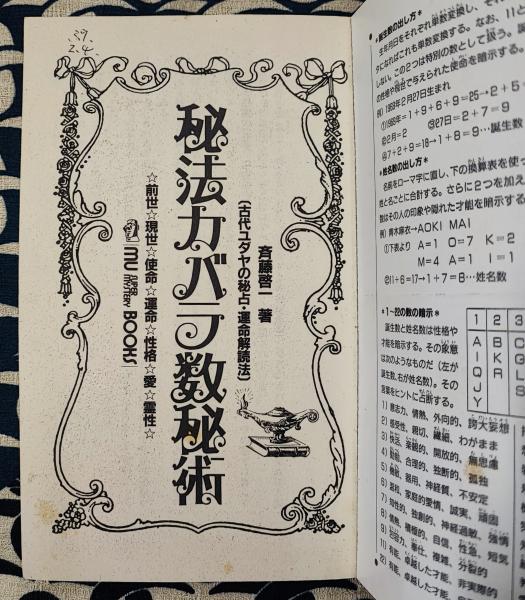 2.4.
斉藤啓一 著
〔古代ユダヤの秘占・運命解読法〕
秘法カバラ数秘術
☆前世☆現世☆使命☆運命☆性格☆愛☆霊性☆
MU SUPER MYSTERY BOOKS
＊誕生数の出し方＊
生年月日をそれぞれ単数変換し、それ
タになればこれも単数変換する。なお、11と
しない。この2つは特別の数として扱う。誕
の性格や現世で与えられた使命を暗示する。
例）1989年2月27日生まれ
①1989年＝1＋9＋8＋9＝
②2月＝2　③27日＝2＋7＝9
④7＋2＋9＝18→1＋8＝9…誕生数
＊姓名数の出し方＊
名前をローマ字に直し、下の換算表を使っ
と名ごとに合計する。さらに2つを加え
数はその人の印象や隠れた才能を暗示する
例）青木麻衣→AOKI MAI
①下表より A＝1 O＝7 K＝2
M＝4 A＝1 I＝1
②11＋6＝17→1＋7＝8…姓名数
＊1～22の数の暗示＊
誕生数と姓名数は性格や
才能を暗示する。その象意
は次のようなものだ（左が
誕生数、右が姓名数）。その
言葉をヒントに占断する。
1 2 3
A B C
I K G
Q R L
J S
Y
1）意志力、情熱、外向的、誇大妄想
2）感受性、親切、繊細、わがまま
3）快活、楽観的、開放的、無思慮
4）勤勉、合理的、独断的、孤独
5）機敏、器用、神経質、不安定
6）温和、家庭的愛情、誠実、頑固
7）知性的、独創的、神経過敏、強情
8）情熱、積極的、自信、性急、短気
9）包容力、奉仕、複雑、分裂的
11）有能、卓越した才能、非実際的
22）有能、卓越した才能、